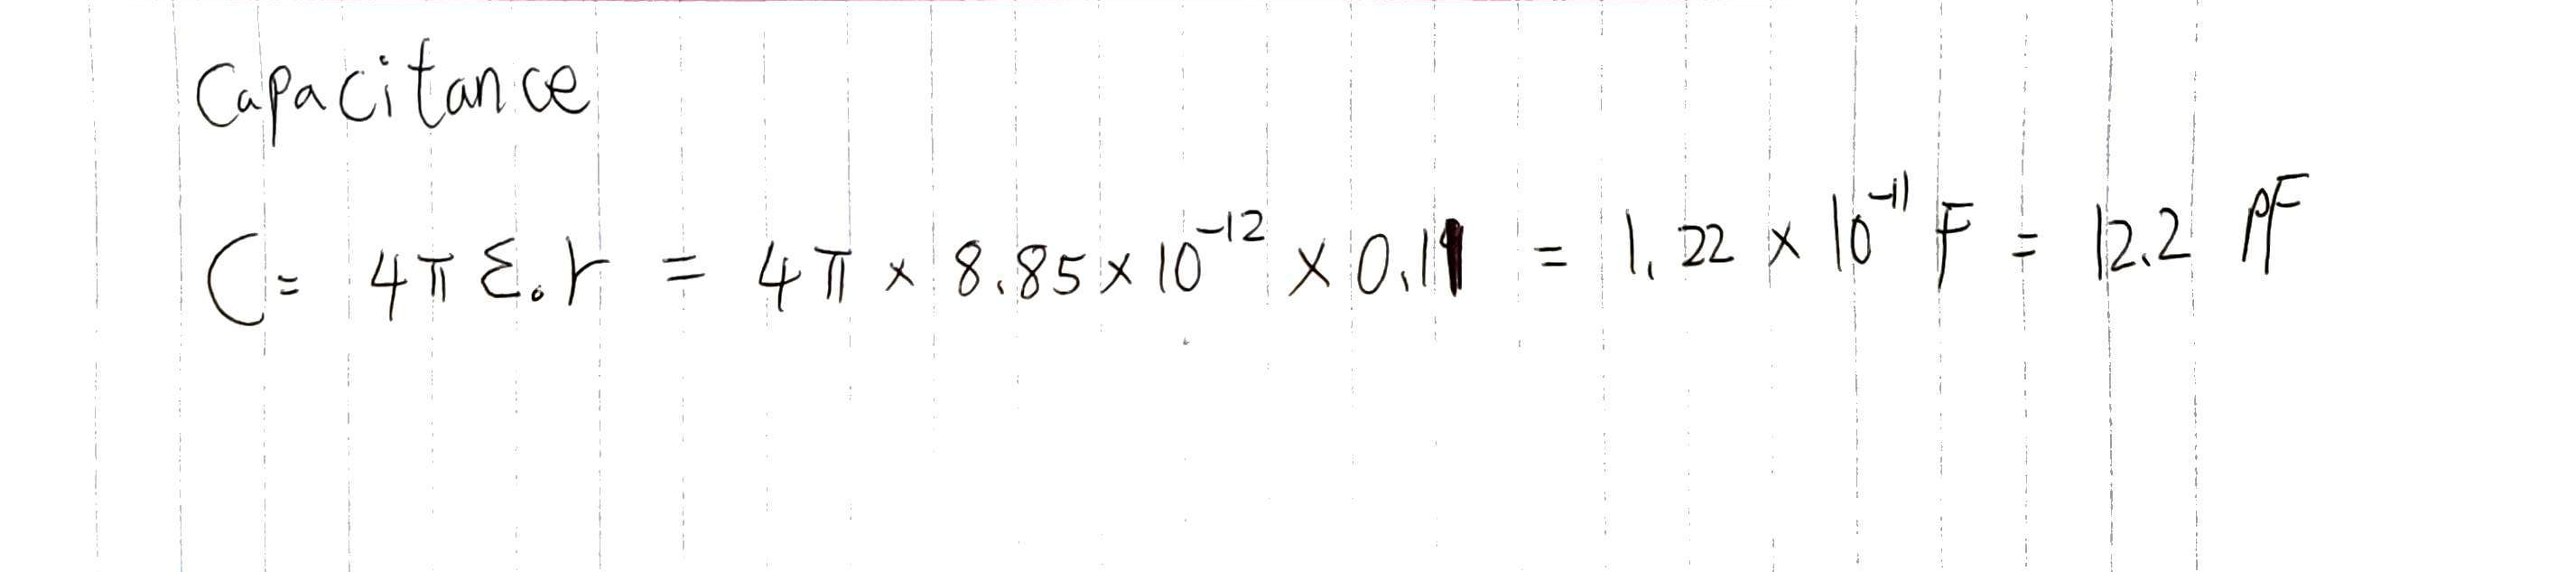 Capacitance
C = 4π ε₀ r = 4π × 8.85 × 10⁻¹² × 0.11 = 1.22 × 10⁻¹¹ F = 12.2 pF